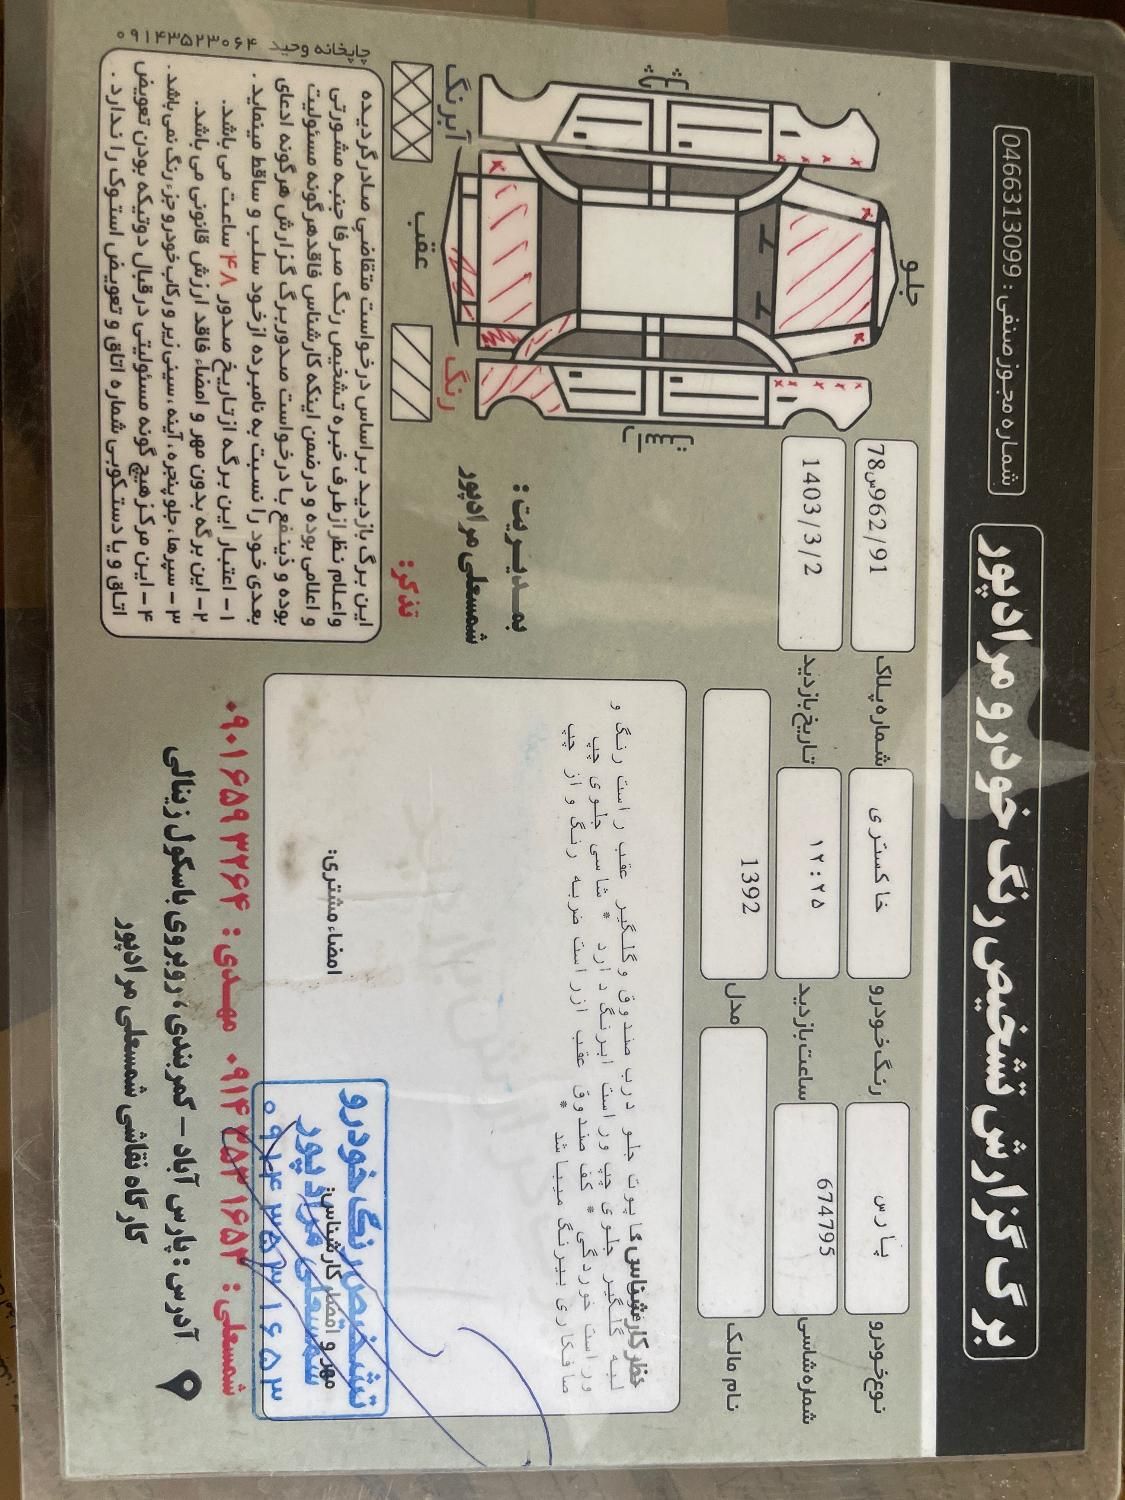 برگ گزارش تشخیص رنگ خودرو مرادپور
شماره مجوز صنفی : 0466313099
نوع خودرو
پارس
رنگ خودرو
خاکستری
شماره پلاک
78س962/91
شماره شاسی
674795
ساعت بازدید
۱۲:۲۵
تاریخ بازدید
1403/3/2
نام مالک
مدل
1392
جلو
راست
چپ
عقب
رنگ
آبرنگ
نظر کارشناس:کاپوت جلو درب صندوق وگلگیر عقب راست رنگ و
لبه گلگیر جلوی چپ وراست ابرنگ دارد * شاسی جلوی چپ
وراست خوردگی * کف صندوق عقب ازراست ضربه رنگ و از چپ
صافکاری بیرنگ میباشد *
امضاء مشتری:
مهر و امضاء کارشناس:
تشخیص رنگ خودرو
شمسعلی مرادپور
۰۹۱۴۳۵۳۱۶۵۳
بمدیریت :
شمسعلی مرادپور
تذکر:
این برگ بازدید براساس درخواست متقاضی صادر گردیده
واعلام نظر از طرف خبره تشخیص رنگ صرفا جنبه مشورتی
و اعلامی بوده و درضمن اینکه کارشناس فاقد هرگونه مسئولیت
بوده و ذینفع با درخواست صدور برگ گزارش هرگونه ادعای
بعدی خود را نسبت به نامبرده از خود سلب و ساقط مینماید.
۱- اعتبار این برگه از تاریخ صدور ۴۸ ساعت می باشد.
۲- این برگه بدون مهر و امضاء فاقد ارزش قانونی می باشد.
۳- سپرها، جلو پنجره، آینه، سینی زیر و رکاب خودرو جزء رنگ نمی باشد.
۴- این مرکز هیچ گونه مسئولیتی در قبال دوتیکه بودن تعویض
اتاق و یا دستکوبی شماره اتاق و تعویض استوک را ندارد.
شمسعلی : ۰۹۱۴۳۵۳۱۶۵۳ مهدی : ۰۹۰۱۶۵۹۳۲۶۴
آدرس : پارس آباد – کمربندی، روبروی باسکول زینالی
کارگاه نقاشی شمسعلی مرادپور
چاپخانه وحید ۰۹۱۴۳۵۲۳۰۶۴